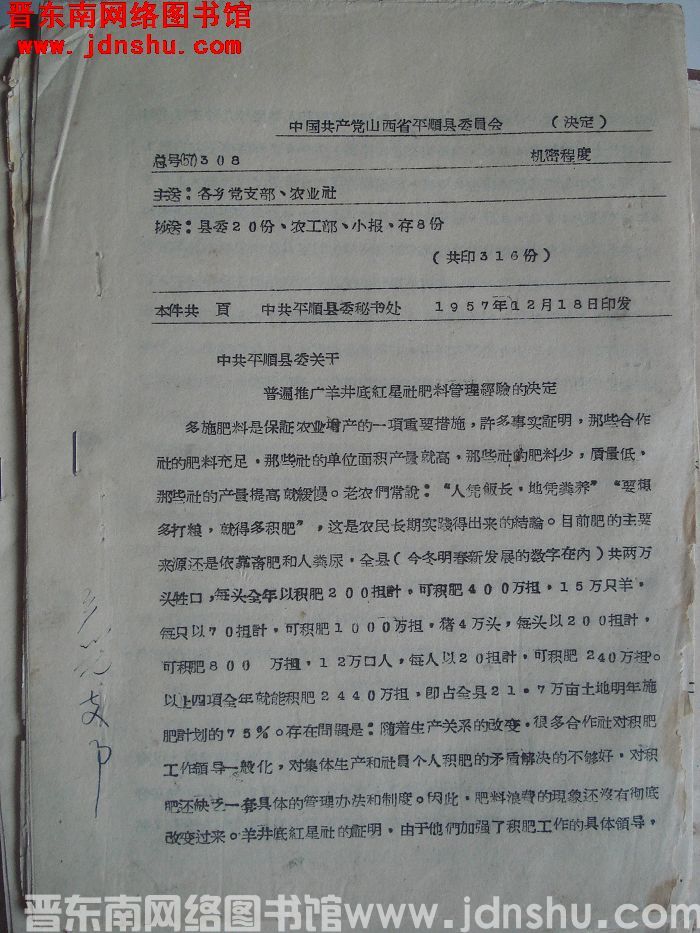 晋东南网络图书馆
www.jdnshu.com
中国共产党山西省平順县委員会　（决定）
总号(57)308　机密程度
主送：各乡党支部、农业社
抄送：县委20份、农工部、小报、存8份
（共印316份）
本件共　頁　中共平順县委秘书处　1957年12月18日印发
中共平順县委关于
普遍推广羊井底紅星社肥料管理經驗的决定
多施肥料是保証农业增产的一項重要措施，許多事实証明，那些合作
社的肥料充足，那些社的单位面积产量就高，那些社的肥料少，质量低，
那些社的产量提高就緩慢。老农們常說：“人凭飯长，地凭粪养”“要想
多打粮，就得多积肥”，这是农民长期实踐得出来的結論。目前肥的主要
来原还是依靠畜肥和人粪尿，全县（今冬明春新发展的数字在內）共两万
头牲口，每头全年以积肥200担計，可积肥400万担，15万只羊，
每只以70担計，可积肥1000万担，猪4万头，每头以200担計，
可积肥800 万担，12万口人，每人以20担計，可积肥240万担。
以上四項全年就能积肥2440万担，即占全县21.7万亩土地明年施
肥計划的75%。存在問題是：随着生产关系的改变，很多合作社对积肥
工作領导一般化，对集体生产和社員个人积肥的矛盾解决的不够好，对积
肥还缺乏一套具体的管理办法和制度。因此，肥料浪費的現象还沒有彻底
改变过来。羊井底紅星社的証明，由于他們加强了积肥工作的具体領导，
支部
晋东南网络图书馆 www.jdnshu.com